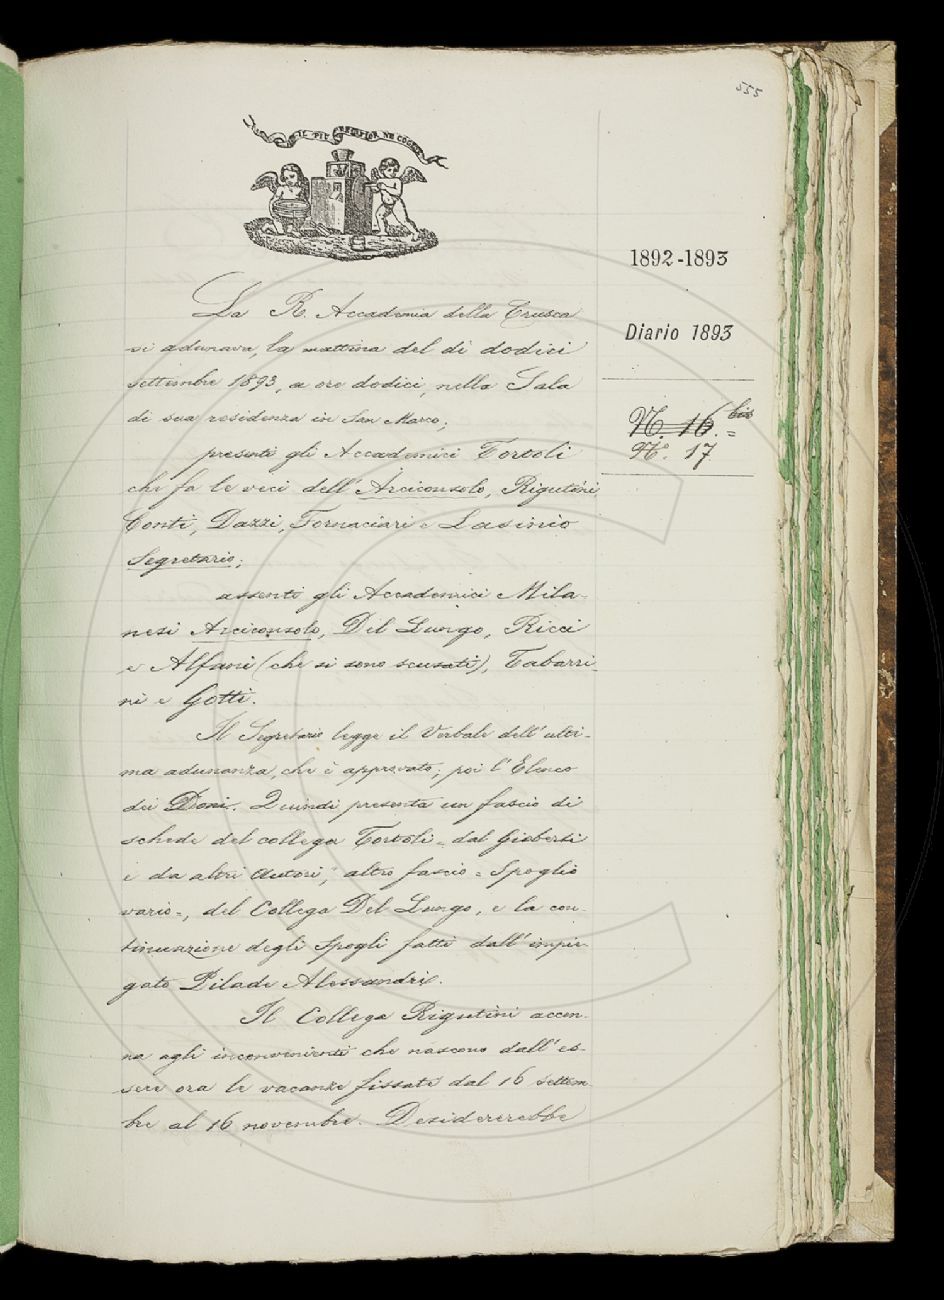 555
IL PIÙ BEL FIOR NE COGLIE
1892-1893
Diario 1893
N. 16. bis =
N.° 17
La R. Accademia della Crusca
si adunava, la mattina del dì dodici
settembre 1893, a ore dodici, nella Sala
di sua residenza in San Marco;
presenti gli Accademici Tortoli
che fa le veci dell'Arciconsolo, Rigutini
Conti, Dazzi, Fornaciari e Lasinio
Segretario;
assenti gli Accademici Mila-
nesi Arciconsolo, Del Lungo, Ricci
e Alfani (che si sono scusati), Tabarri-
ni e Gotti.
Il Segretario legge il Verbale dell'ulti-
ma adunanza, che è approvato; poi l'Elenco
dei Doni. Quindi presenta un fascio di
schede del collega Tortoli = dal Gioberti
e da altri Autori; altro fascio = Spoglio
vario =, del Collega Del Lungo, e la con-
tinuazione degli Spogli fatti dall'impie-
gato Pilade Alessandri.
Il Collega Rigutini accen-
na agli inconvenienti che nascono dall'es-
sere ora le vacanze fissate dal 16 settem
bre al 16 novembre. Desidererebbe